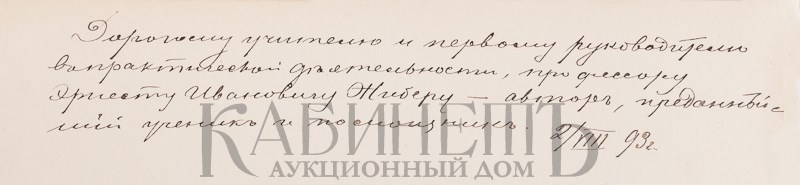 Дорогому учителю и первому руководителю
в практической дѣятельности, профессору
Эрнесту Ивановичу Жиберу — авторъ, преданнѣй-
шій ученикъ и помощникъ. 2/VIII 93 г.
КАБИНЕТЪ
АУКЦИОННЫЙ ДОМ